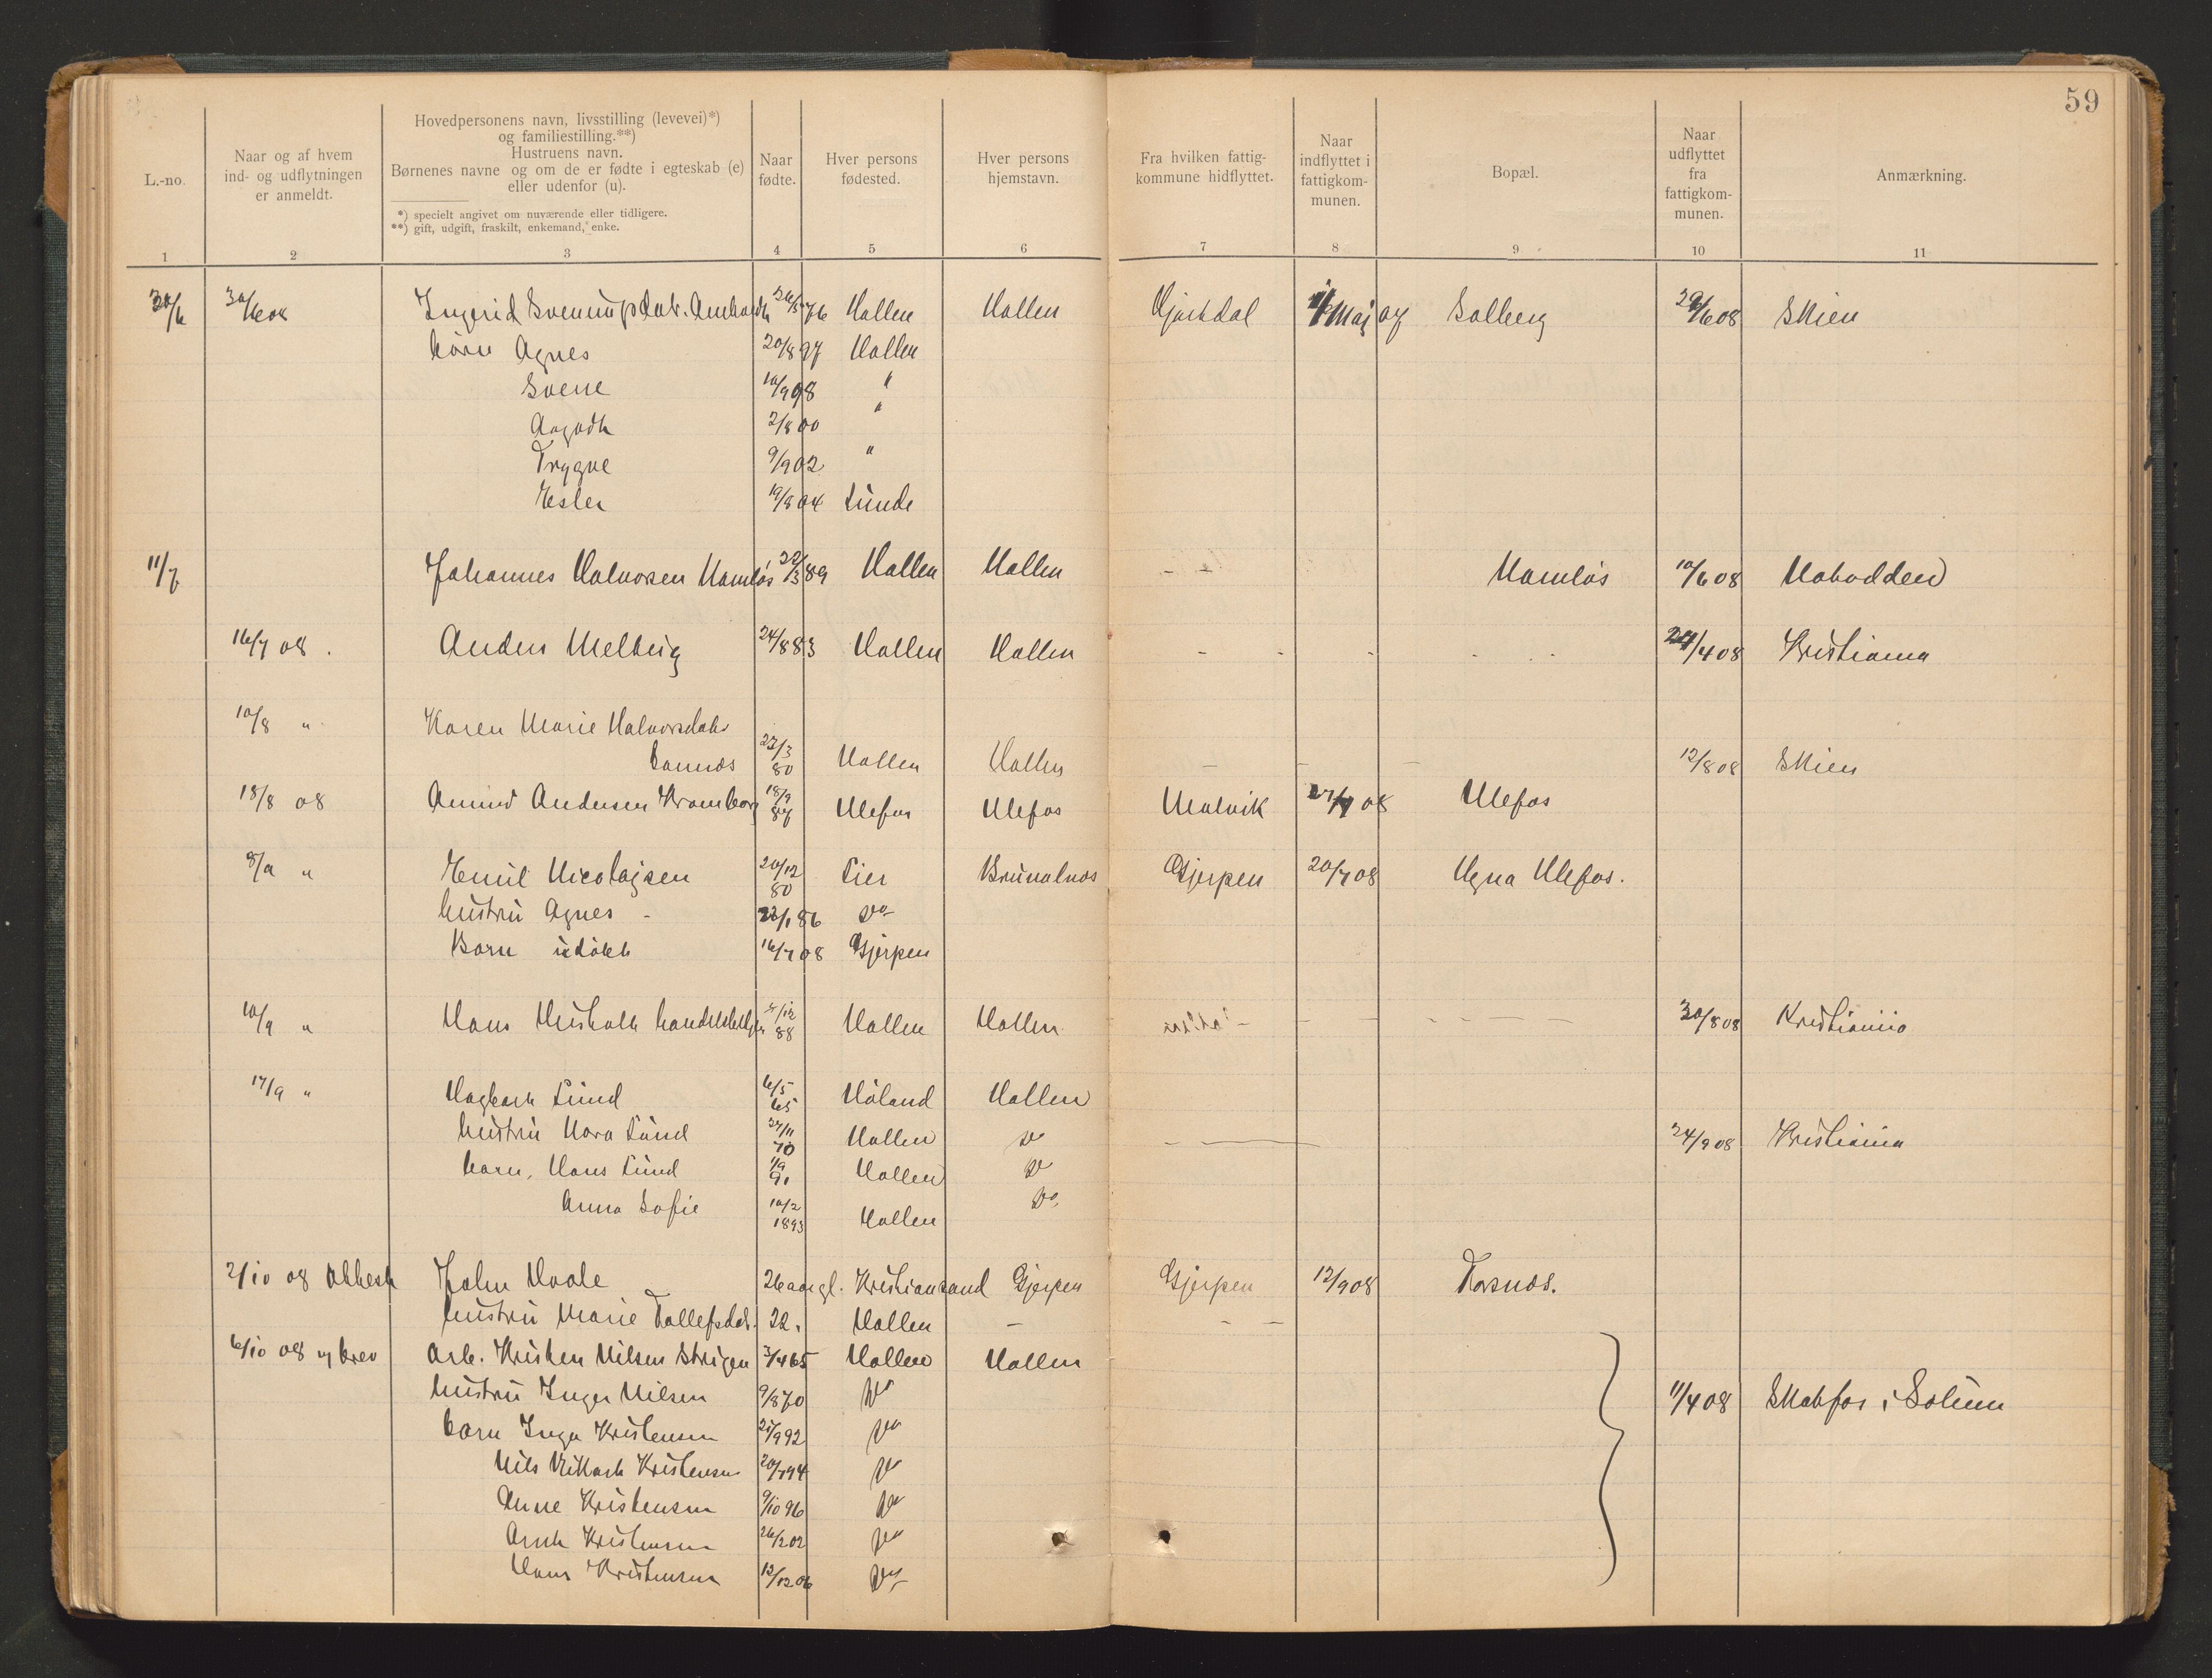 59
L.-no.
Naar og af hvem
ind- og udflytningen
er anmeldt.
Hovedpersonens navn, livsstilling (levevei)*)
og familiestilling.**)
Hustruens navn.
Børnenes navne og om de er fødte i egteskab (e)
eller udenfor (u).
*) specielt angivet om nuværende eller tidligere.
**) gift, udgift, fraskilt, enkemand, enke.
Naar
fødte.
Hver persons
fødested.
Hver persons
hjemstavn.
Fra hvilken fattig-
kommune hidflyttet.
Naar
indflyttet i
fattigkom-
munen.
Bopæl.
Naar
udflyttet
fra
fattigkom-
munen.
Anmærkning.
1 2 3 4 5 6 7 8 9 10 11
30/6 30/6 08 Ingerid 76 Hollen Hollen Hjartdal Maj 07 Solberg 29/6 08 Skien
børn Agnes 20/8 97 Hollen
Sverre 10/9 98 "
2/8 00 "
Trygve 9/9 02 "
Ester 19/8 04 Lunde
11/7 Johannes Halvorsen Namløs 22/3 89 Hollen Hollen - - Namløs 10/6 08 Notodden
16/7 08. Anders Melberg 24/8 83 Hollen Hollen - - - - - 24/4 08 Kristiania
10/8 " Karen Marie Halvorsdatr
23/3 80 Hollen Hollen - - - 12/8 08 Skien
18/8 08 Amund Andersen 18/9 Ulefos Ulefos Malvik 08 Ulefos
8/9 " Emil Nicolajsen 20/12 80 Lier Brunlanæs Gjerpen 20/7 08 Ulefos.
hustru Agnes - 22/1 86 Do
Barn udøbt 16/7 08 Gjerpen
10/9 " Hans 88 Hollen Hollen - - - - - 30/8 08 Kristiania
17/9 " Hagbart Lund 6/5 65 Høland Hollen
hustru Lund 27/11 70 Hollen Do - 24/9 08 Kristiania
barn. Hans Lund 1/9 91 Hollen Do
Anna Sofie 10/2 1893 Hollen Do.
2/10 08 John 26 aar gl. Kristiansand Gjerpen Gjerpen 12/9 08 Torsnæs.
hustru Marie Tollefsdatr. 22. Hollen - - -
6/10 08 brev Arb. Kristen Nilsen 3/4 65 Hollen Hollen
hustru Inger Nilsen 9/8 70 Do 11/4 08 Skotfos i Solum
barn Inga Kristensen 92 Do
Nils Kristensen 94 Do
Anne Kristensen 9/10 96 Do
Kristensen 26/2 02 Do
Hans Kristensen 12/12 06 Do